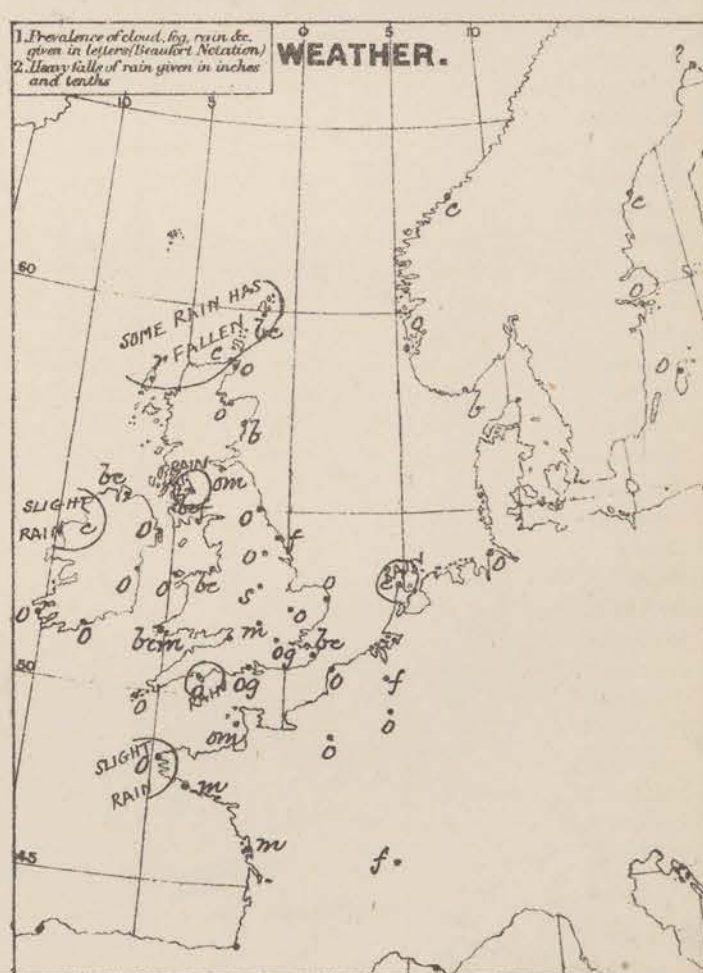 1. Prevalence of cloud, fog, rain &c.
given in letters (Beaufort Notation)
2. Heavy falls of rain given in inches
and tenths
WEATHER.
10 5 0 5 10
?
c
c
60
o
SOME RAIN HAS
FALLEN
bc
c
o
o
o
b
b
RAIN
bc
om
SLIGHT
RAIN
c
o
o
f
o
o
o
bc
s
o
o
o
o
o
bcm
m
og
bc
50
o
RAIN
og
o
f
o
om
o
SLIGHT
RAIN
o
m
m
45
f